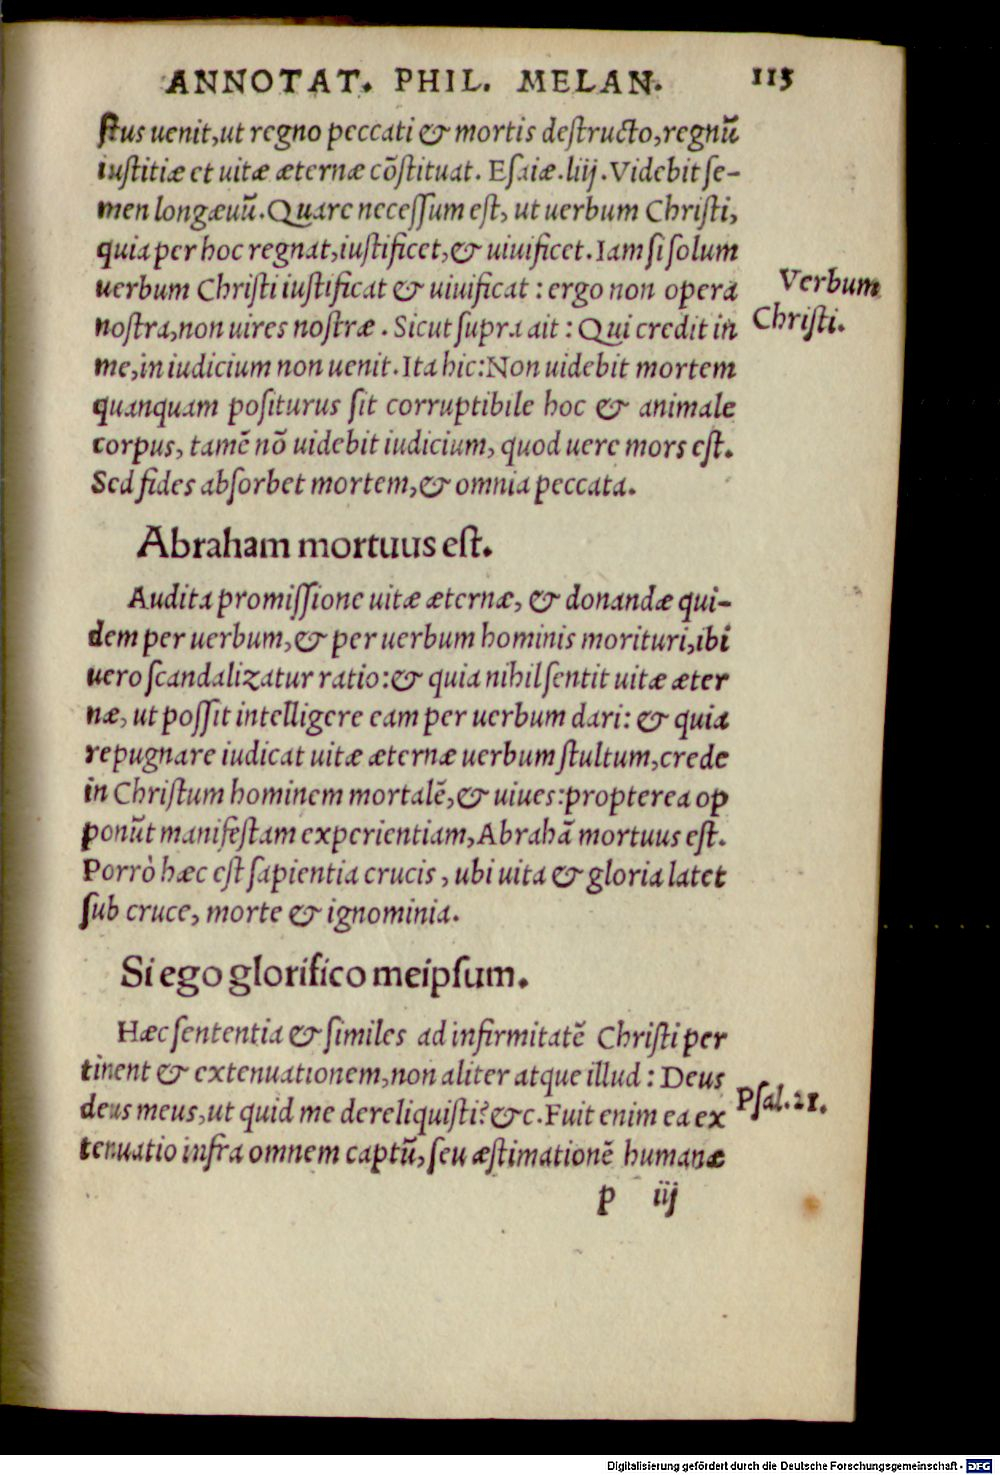 ANNOTAT. PHIL. MELAN. 115
ſtus uenit, ut regno peccati & mortis deſtructo, regnū
iuſtitiæ et uitæ æternæ cōſtituat. Eſaiæ. liij. Videbit ſe-
men longæuū. Quare neceſſum eſt, ut uerbum Chriſti,
quia per hoc regnat, iuſtificet, & uiuificet. Iam ſi ſolum
uerbum Chriſti iuſtificat & uiuificat: ergo non opera
Verbum
noſtra, non uires noſtræ. Sicut ſupra ait: Qui credit in
Chriſti.
me, in iudicium non uenit. Ita hic: Non uidebit mortem
quanquam poſiturus ſit corruptibile hoc & animale
corpus, tamē nō uidebit iudicium, quod uere mors eſt.
Sed fides abſorbet mortem, & omnia peccata.
Abraham mortuus eſt.
Audita promiſſione uitæ æternæ, & donandæ qui-
dem per uerbum, & per uerbum hominis morituri, ibi
uero ſcandalizatur ratio: & quia nihil ſentit uitæ æter
næ, ut poſſit intelligere eam per uerbum dari: & quia
repugnare iudicat uitæ æternæ uerbum ſtultum, crede
in Chriſtum hominem mortalē, & uiues: propterea op
ponūt manifeſtam experientiam, Abrahā mortuus eſt.
Porrò hæc eſt ſapientia crucis, ubi uita & gloria latet
ſub cruce, morte & ignominia.
Si ego glorifico meipſum.
Hæc ſententia & ſimiles ad infirmitatē Chriſti per
tinent & extenuationem, non aliter atque illud: Deus
deus meus, ut quid me dereliquiſti? &c. Fuit enim ea ex
Pſal. 21.
tenuatio infra omnem captū, ſeu æſtimationē humanæ
p iij
Digitalisierung gefördert durch die Deutsche Forschungsgemeinschaft - DFG